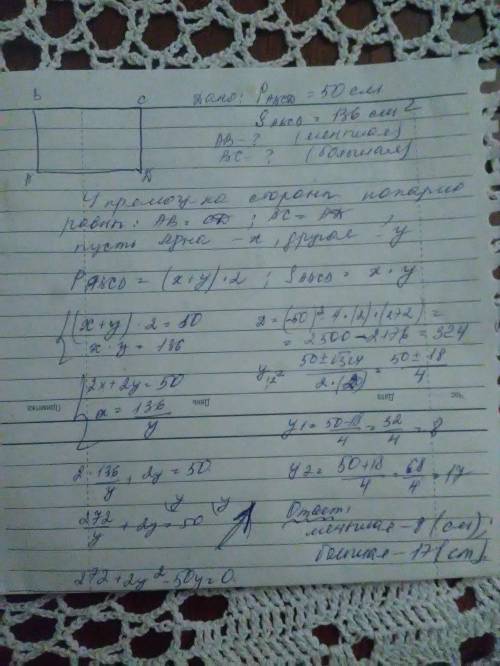 B C
A D
Дано: P ABCD = 50 см
S ABCD = 136 см²
AB - ? (меньшая)
BC - ? (большая)
У прямоу-ка стороны попарно
равны: AB = CD ; BC = AD
пусть одна - x, другая - y
P ABCD = (x+y)·2 ; S ABCD = x·y
{(x+y)·2 = 50
x·y = 136
{2x+2y=50
x = 136/y
2·136/y + 2y = 50
272/y + 2y = 50
272+2y²-50y=0
D = (-50)²-4·(2)·(272) =
= 2500-2176 = 324
y1,2 = 50±√324/2·(2) = 50±18/4
y1 = 50-18/4 = 32/4 = 8
y2 = 50+18/4 = 68/4 = 17
Ответ:
меньшая - 8 (см);
большая - 17 (см).
Примечания День День Час